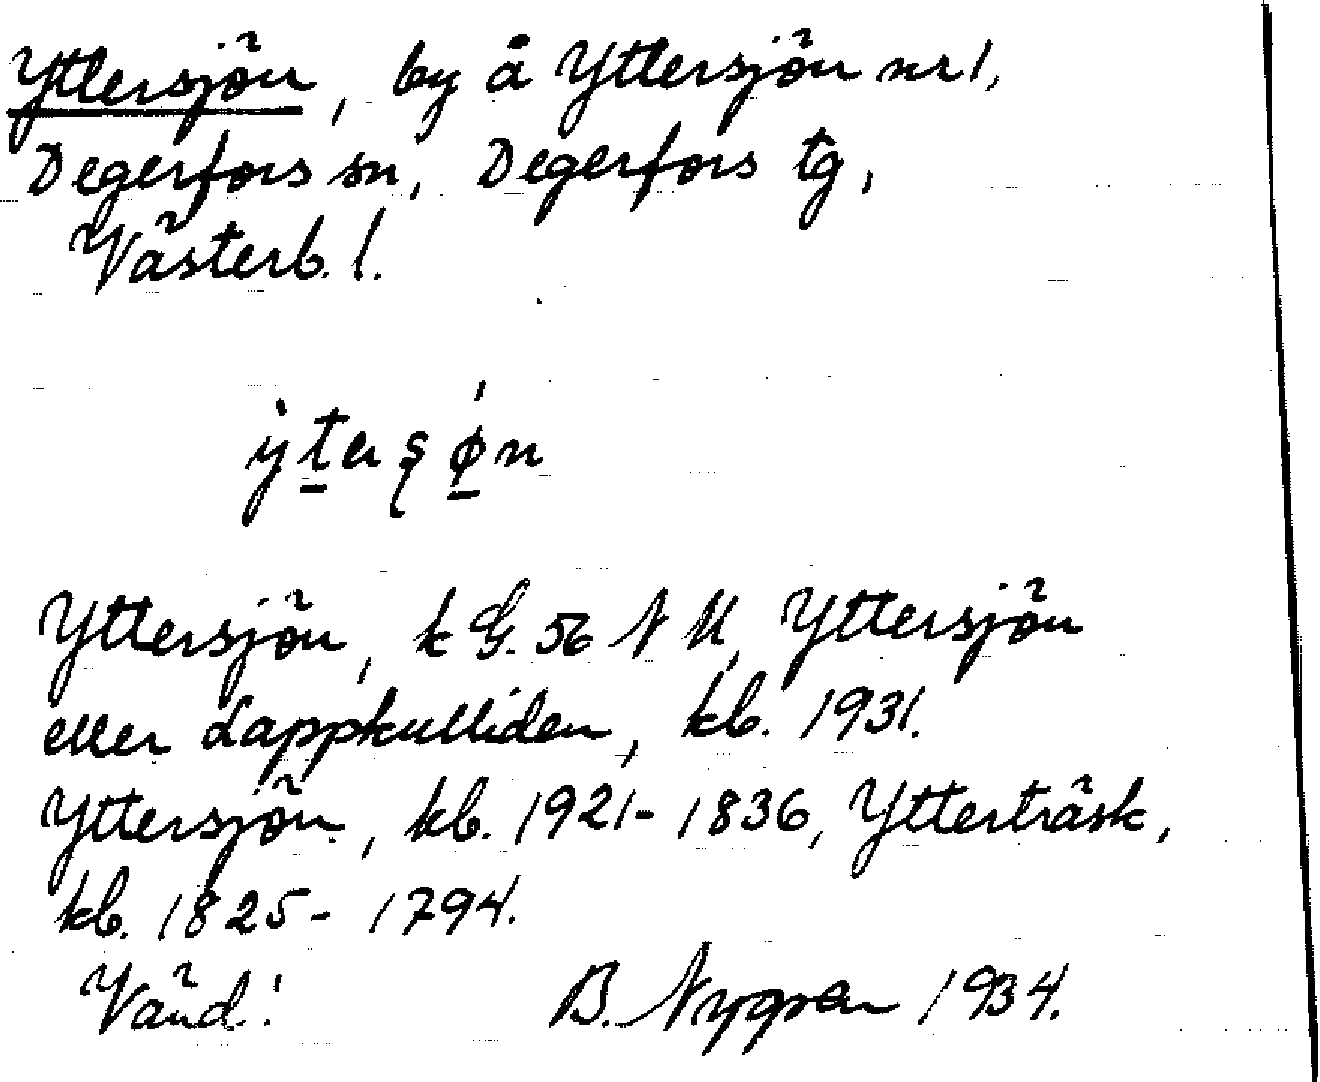 Yttersjön, by å Yttersjön nr 1,
Degerfors sn, Degerfors tg,
Västerb. l.
Yttersjön, k G. 56 N U, Yttersjön
eller Lappkulliden, kb. 1931.
Yttersjön, kb. 1921-1836, Ytterträsk,
kb. 1825-1794.
Vänd! B. Nygren 1934.